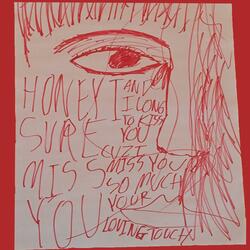 HONEY I
SURE
MISS
YOU
AND
I LONG
TO KISS
YOU
CUZ I
MISS YOU
SO MUCH
YOUR
LOVING TOUCH